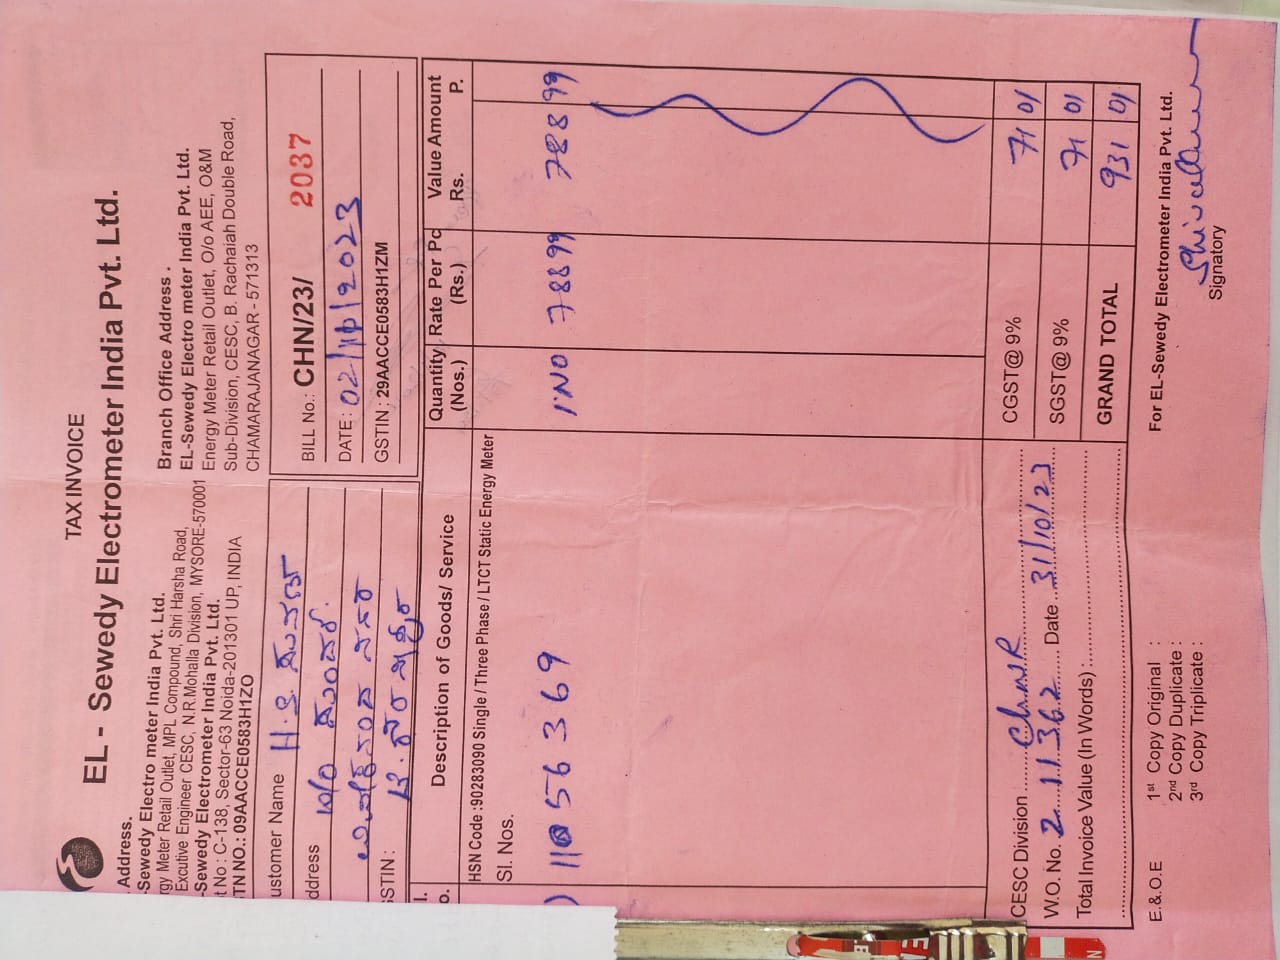 TAX INVOICE
EL - Sewedy Electrometer India Pvt. Ltd.
Address.
-Sewedy Electro meter India Pvt. Ltd.
gy Meter Retail Outlet, MPL Compound, Shri Harsha Road,
Excutive Engineer CESC, N.R.Mohalla Division, MYSORE-570001
-Sewedy Electrometer India Pvt. Ltd.
t No : C-138, Sector-63 Noida-201301 UP, INDIA
TN NO.: 09AACCE0583H1ZO
Branch Office Address .
EL-Sewedy Electro meter India Pvt. Ltd.
Energy Meter Retail Outlet, O/o AEE, O&M
Sub-Division, CESC, B. Rachaiah Double Road,
CHAMARAJANAGAR - 571313
ustomer Name
ddress
STIN :
BILL No.: CHN/23/ 2037
DATE: 02/11/2023
GSTIN : 29AACCE0583H1ZM
l. Description of Goods/ Service Quantity Rate Per Pc Value Amount
o. (Nos.) (Rs.) Rs. P.
HSN Code : 90283090 Single / Three Phase / LTCT Static Energy Meter
Sl. Nos.
) 11056369 1NO 788 99 788 99
CESC Division CGST@ 9% 71 01
W.O. No. 211362 Date 31/10/23 SGST@ 9% 71 01
Total Invoice Value (In Words): GRAND TOTAL 931 01
E.& O.E 1st Copy Original :
2nd Copy Duplicate :
3rd Copy Triplicate :
For EL-Sewedy Electrometer India Pvt. Ltd.
Signatory